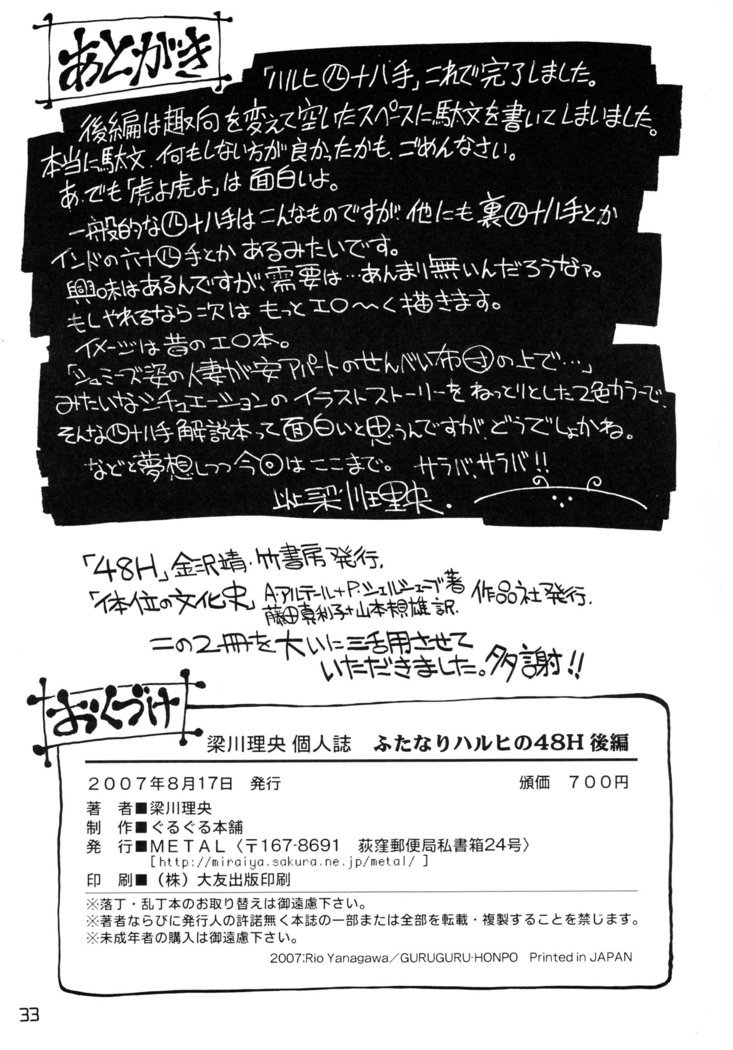 あとがき
「ハルヒ㊃十八手」、これで完了しました。
後編は趣向を変えて空いたスペースに駄文を書いてしまいました。
本当に駄文、何もしない方が良かったかも、ごめんなさい。
あ、でも「虎よ虎よ」は面白いよ。
一般的な㊃十八手はこんなものですが、他にも裏㊃十八手とか
インドの六十㊃手とかあるみたいです。
興味はあるんですが、需要は…あんまり無いんだろうなァ。
もしやれるなら次はもっとエロ〜く描きます。
イメージは昔のエロ本。
「シュミーズ姿の人妻が安アパートのせんべい布団の上で…」
みたいなシチュエーションのイラストストーリーをねっとりとした2色カラーで、
そんな㊃十八手解説本って面白いと思うんですが、どうでしょかね。
などと夢想しつつ今回はここまで。 サラバ、サラバ!!
以上梁川理央.
「48H」金沢靖・竹書房発行.
「体位の文化史」A・アルテール+P・シェルシェーブ著
藤田真利子+山本規雄訳. 作品社発行.
この2冊を大いに活用させて
いただきました。多謝!!
おくづけ
梁川理央 個人誌 ふたなりハルヒの48H 後編
2007年8月17日 発行 頒価 700円
著 者■梁川理央
制 作■ぐるぐる本舗
発 行■METAL〈〒167-8691 荻窪郵便局私書箱24号〉
[http://miraiya.sakura.ne.jp/metal/ ]
印 刷■(株)大友出版印刷
※落丁・乱丁本のお取り替えは御遠慮下さい。
※著者ならびに発行人の許諾無く本誌の一部または全部を転載・複製することを禁じます。
※未成年者の購入は御遠慮下さい。
2007:Rio Yanagawa/GURUGURU-HONPO Printed in JAPAN
33